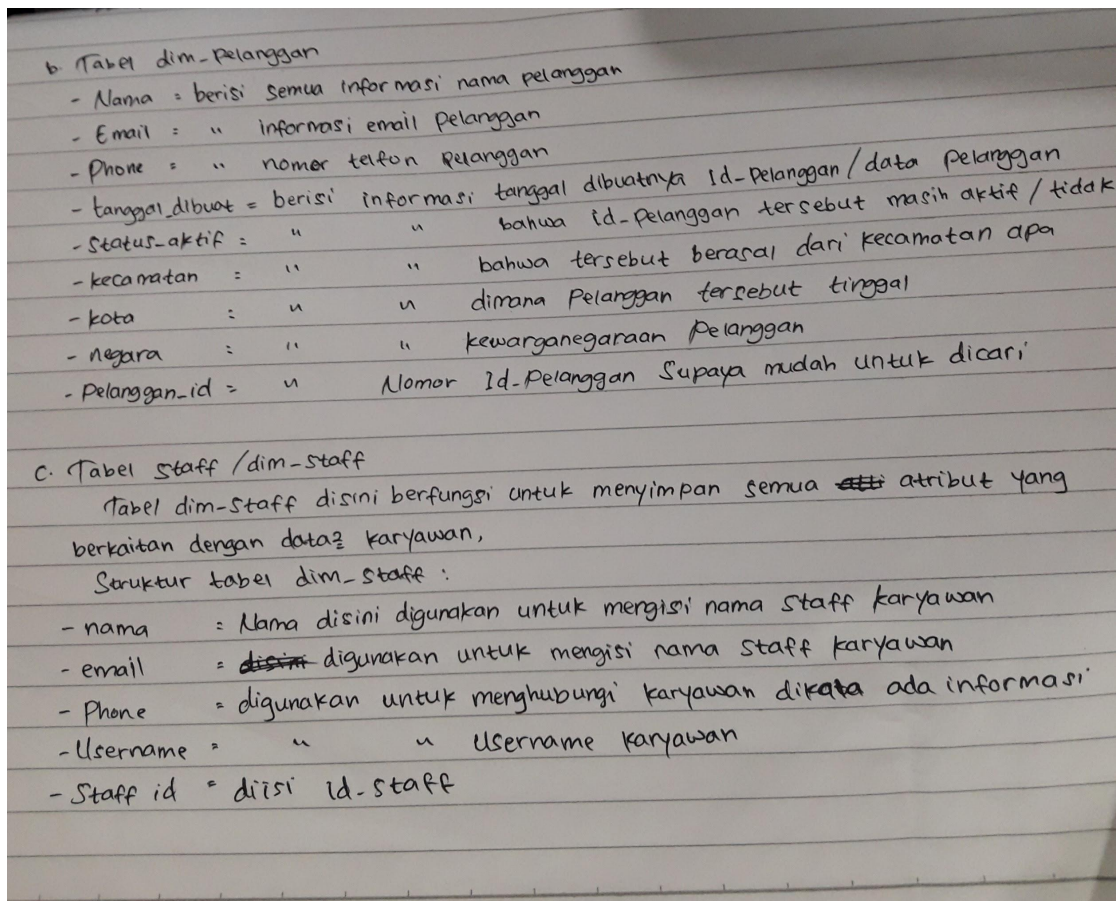 b. Tabel dim-pelanggan
- Nama = berisi semua informasi nama pelanggan
- Email = " informasi email Pelanggan
- Phone = " nomer telfon pelanggan
- tanggal_dibuat = berisi informasi tanggal dibuatnya id-pelanggan / data pelanggan
- Status-aktif = " " bahwa id-pelanggan tersebut masih aktif / tidak
- kecamatan = " " bahwa tersebut berasal dari kecamatan apa
- kota : " " dimana Pelanggan tersebut tinggal
- negara : " " kewarganegaraan Pelanggan
- Pelanggan_id = " Nomor Id-Pelanggan Supaya mudah untuk dicari
C. Tabel staff / dim-staff
Tabel dim-staff disini berfungsi untuk menyimpan semua atribut yang
berkaitan dengan data2 karyawan,
Struktur tabel dim_staff :
- nama = Nama disini digunakan untuk mengisi nama staff karyawan
- email = disini digunakan untuk mengisi nama staff karyawan
- Phone = digunakan untuk menghubungi karyawan ada informasi
- Username = " " Username karyawan
- Staff id = diisi id-staff